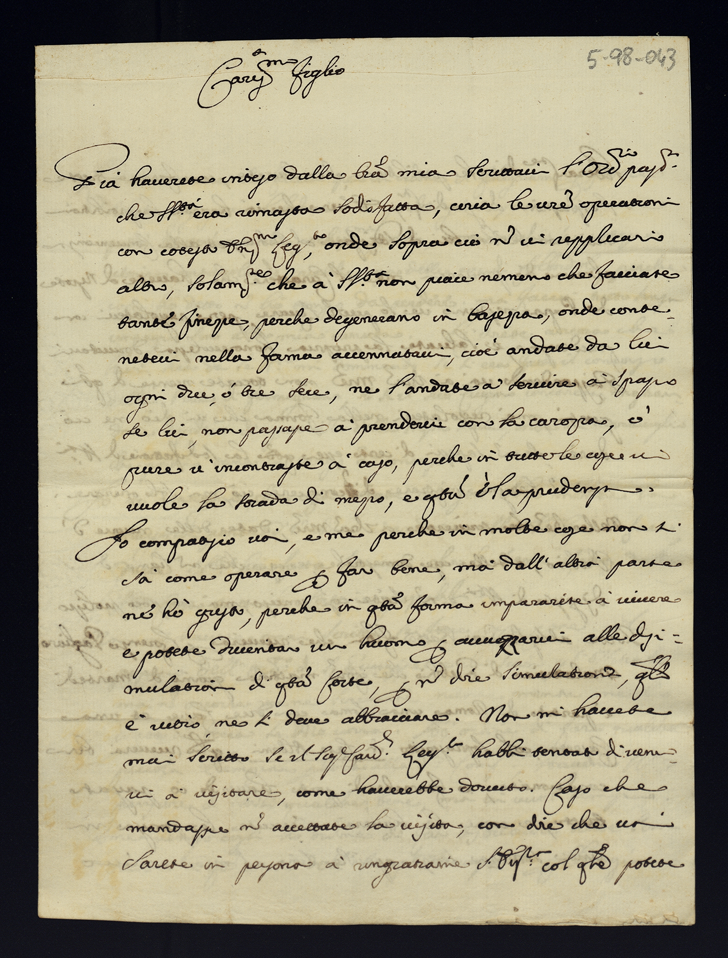 5-98-043
Cariss.mo figlio
Già haverete inteso dalla l'ra mia scrittavi l'Ord.rio pass.to
che S.S.tà era rimasta sodisfatta, circa le v're operationi
con cotesto Em.mo Leg.to, onde sopra ciò n' vi repplicarò
altro, solam.te che à S.S.tà non piace nemeno che facciate
tante finezze, perche degenerano in bassezza, onde conte=
netevi nella forma accennatavi, cioè andate da lui
ogni due, ò tre sere, ne l'andate à servire à spasso
se lui non passasse à prendervi con la carozza, ò
pure v'incontraste à caso, perche in tutte le cose vi
vuole la strada di mezo, e q'ta è la prudenza.
Io compatisco voi, e me perche in molte cose non si
sà come operare p far bene, mà dall'altra parte
ne hò gusto, perche in q'ta forma impararete à vivere
e potete diventar un huomo p avvezzarvi alle dissi=
mulationi di q'ta Corte, p n' dire simulationi, q'le
è vitio ne si deve abbracciare. Non mi havete
mai scritto se il Sig.r Card.l Leg.to habbi tentato di veni=
vi à visitare, come haverebbe dovuto. Caso che
mandasse n' accettate la visita, con dire che voi
sarete in persona à ringratiarne S. Em.za col q'le potete